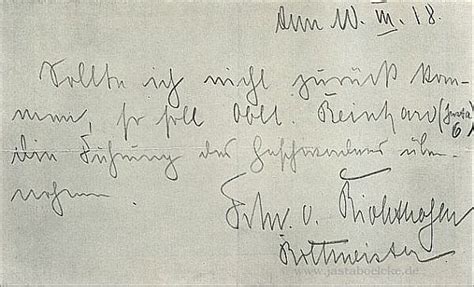 den 10. III. 18.
Sollte ich nicht zurück kom-
men, so soll Oblt. Reinhard (Jasta 6)
die Führung des Geschwaders über-
nehmen.
Frhr. v. Richthofen
Rittmeister
www.jastaboelcke.de